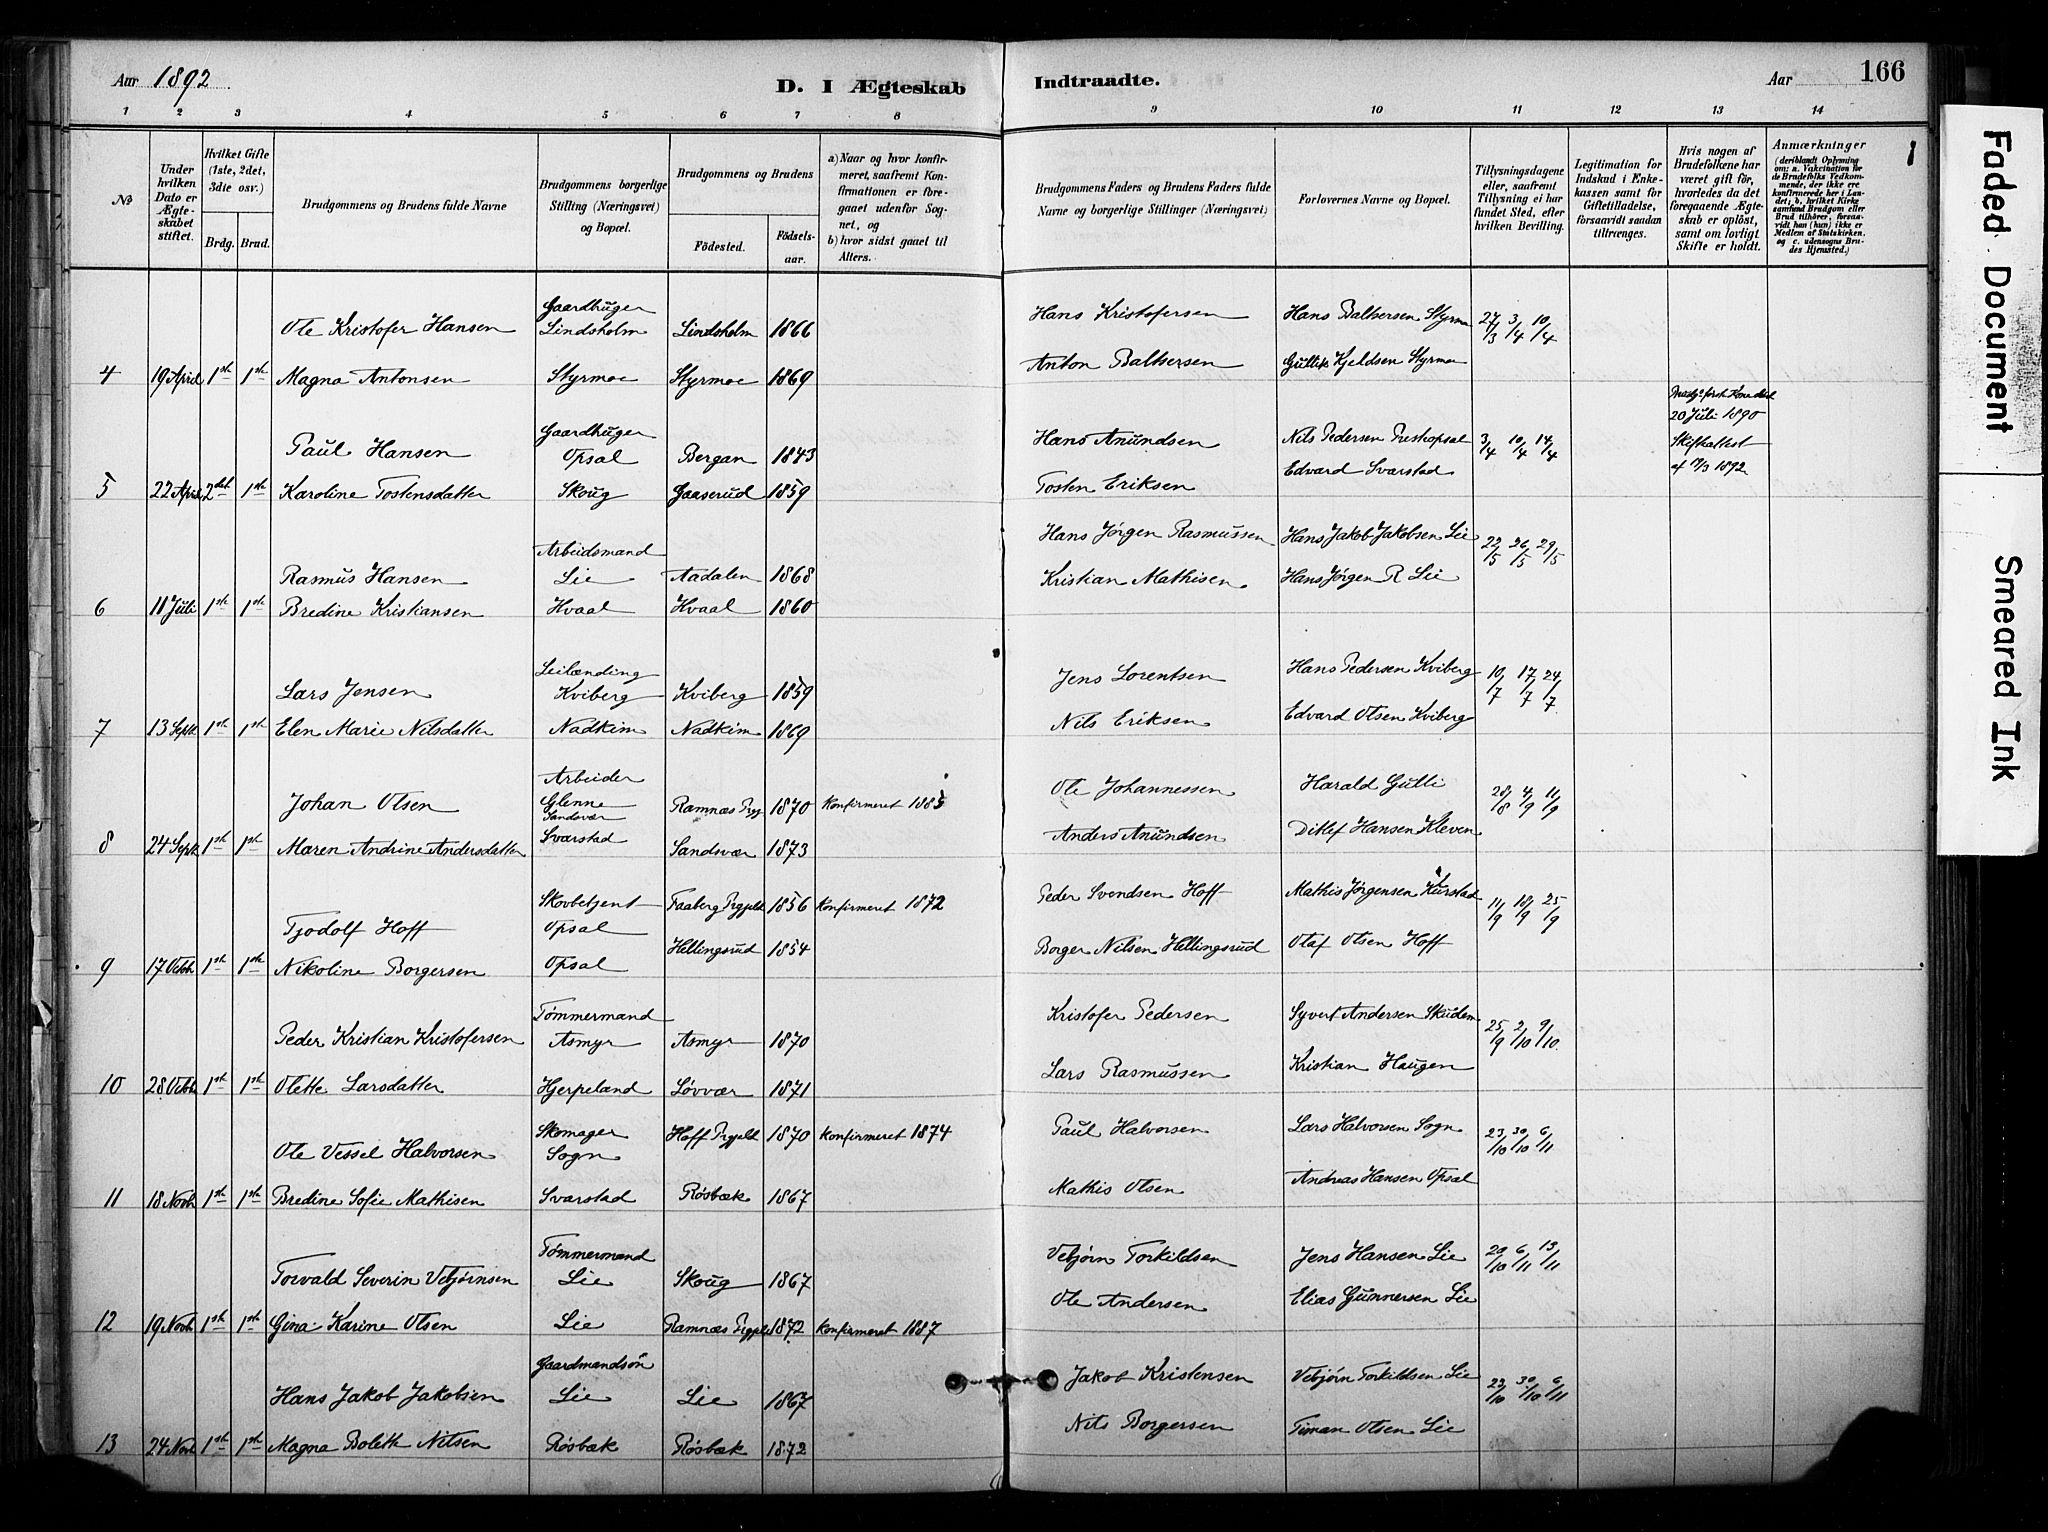 Aar 1892
D. I Ægteskab
Indtraadte.
Aar
166
1 2 3 4 5 6 7 8 9 10 11 12 13 14
No
Under hvilken Dato er Ægteskabet stiftet.
Hvilket Gifte (1ste, 2det, 3die osv.)
Brdg. Brud.
Brudgommens og Brudens fulde Navne
Brudgommens borgerlige Stilling (Næringsvei) og Bopæl.
Brudgommens og Brudens
Födested.
Födsels-aar.
a) Naar og hvor konfirmeret, saafremt Konfirmationen er foregaaet udenfor Sognet, og
b) hvor sidst gaaet til Alters.
Brudgommens Faders og Brudens Faders fulde Navne og borgerlige Stillinger (Næringsvei)
Forlovernes Navne og Bopæl.
Tillysningsdagene eller, saafremt Tillysning ei har fundet Sted, efter hvilken Bevilling.
Legitimation for Indskud i Enkekassen samt for Giftetilladelse, forsaavidt saadan tiltrænges.
Hvis nogen af Brudefolkene har været gift før, hvorledes da det foregaaende Ægteskab er oplöst, samt om lovligt Skifte er holdt.
Anmærkninger (deriblandt Oplysning om: a. Vakcination for de Brudefolks Vedkommende, der ikke ere konfirmerede her i Landet; b. hvilket Kirkesamfund Brudgom eller Brud tilhörer, forsaavidt han (hun) ikke er Medlem af Statskirken. og c. udensogns Brudes Hjemsted.)
Ole Kristofer Hansen Gaardbruger Lindsholm Lindsholm 1866 Hans Kristofersen Hans Baltsersen Styrmo 27/3 3/4 10/4
4 19 April 1ste 1ste Magna Antonsen Styrmoe Styrmoe 1869 Anton Baltsersen Gullik Kjeldsen Styrmoe
Paul Hansen Gaardbruger Opsal Bergan 1843 Hans Anundsen Nils Pedersen Prestopsal 3/4 10/4 14/4 20 Juli 1890 Skifteattest af 19/3 1892
5 22 April 2det 1ste Karoline Tostensdatter Skoug Gaaserud 1859 Tosten Eriksen Edvard Svarstad
Rasmus Hansen Arbeidsmand Lie Aadalen 1868 Hans Jörgen Rasmussen Hans Jakob Jakobsen Lie 22/5 26/5 29/5
6 11 Juli 1ste 1ste Bredine Kristiansen Hvaal Hvaal 1860 Kristian Mathisen Hans Jörgen R Lie
Lars Jensen Leilænding Kviberg Kviberg 1859 Jens Lorentsen Hans Pedersen Kviberg 10/7 17/7 24/7
7 13 Septr 1ste 1ste Elen Marie Nilsdatter Nadkim Nadkim 1869 Nils Eriksen Edvard Olsen Kviberg
Johan Olsen Arbeider Glenne Sandsvær Ramnæs Prgj 1870 Konfirmeret 1885 Ole Johannessen Harald Gulli 28/8 4/9 11/9
8 24 Septr 1ste 1ste Maren Andrine Andersdatter Svarstad Sandsvær 1873 Anders Anundsen Ditlef Hansen Kleven
Tjodolf Hoff Skovbetjent Opsal Faaberg Prgjeld 1856 Konfirmeret 1872 Peder Svendsen Hoff Mathis Jørgensen Kurstad 11/9 18/9 25/9
9 17 Octob 1ste 1ste Nikoline Borgersen Opsal Hellingsrud 1854 Borger Nilsen Hellingsrud Olaf Olsen Hoff
Peder Kristian Kristofersen Tömmermand Asmyr Asmyr 1870 Kristofer Pedersen Syvert Andersen Skudem 25/9 2/10 9/10
10 28 Octob 1ste 1ste Olette Larsdatter Hjerpeland Lövvær 1871 Lars Rasmussen Kristian Haugen
Ole Vessel Halvorsen Skomager Sogn Hoff Prgjeld 1870 Konfirmeret 1874 Paul Halvorsen Lars Halvorsen Sogn 23/10 30/10 6/11
11 18 Novb 1ste 1ste Bredine Sofie Mathisen Svarstad Røsbæk 1867 Mathis Olsen Andreas Hansen Opsal
Torvald Severin Vebjørnsen Tømmermand Lie Skoug 1867 Vebjørn Torkildsen Jens Hansen Lie 29/10 6/11 13/11
12 19 Novb 1ste 1ste Gina Karine Olsen Lie Ramnæs Prgjeld 1872 Konfirmeret 1887 Ole Andersen Elias Gunnersen Lie
Hans Jakob Jakobsen Gaardmandsön Lie Lie 1867 Jakob Kristensen Vebjørn Torkildsen Lie 23/10 30/10 6/11
13 24 Novb 1ste 1ste Magna Bolette Nilsen Røsbæk Røsbæk 1872 Nils Borgersen Timan Olsen Lie
Faded Document
Smeared Ink